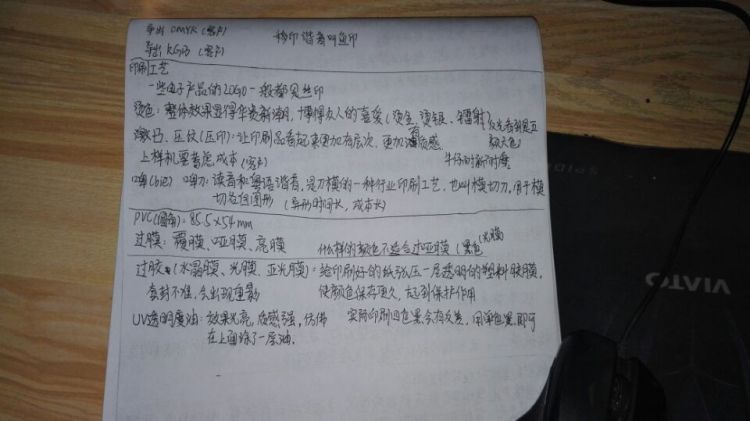 导出 CMYK (客户)
导出 RGB (客户)
移印谐音叫丝印
印刷工艺
一些电子产品的LOGO一般都是丝印
烫色: 整体效果显得华贵新潮, 博得友人的喜爱 (烫金、烫银、镭射) 反光看到是五颜六色)
激凸、压纹 (压印): 让印刷品看起来更加有层次, 更加有质感,
上样机要考虑成本 (客户)
牛仔耐耐磨
啤(bie) 啤刀: 读音和粤语谐音, 是刀模的一种行业印刷工艺, 也叫模切刀, 用于模
切各位图形 (异形时间长, 成本长)
PVC(圆角): 85.5×54mm
过膜: 覆膜、哑膜、亮膜
什么样的颜色不适合过哑膜 (黑色) 光膜
过胶 (水晶膜、光膜、亚光膜): 给印刷好的纸张压一层透明的塑料胶膜,
套封不准, 会出现重影
使颜色保存更久, 起到保护作用
UV透明厚油: 效果光亮, 质感强, 仿佛
在上面涂了一层油.
实际印刷四色黑会有反差, 用单色黑即可
VIATO